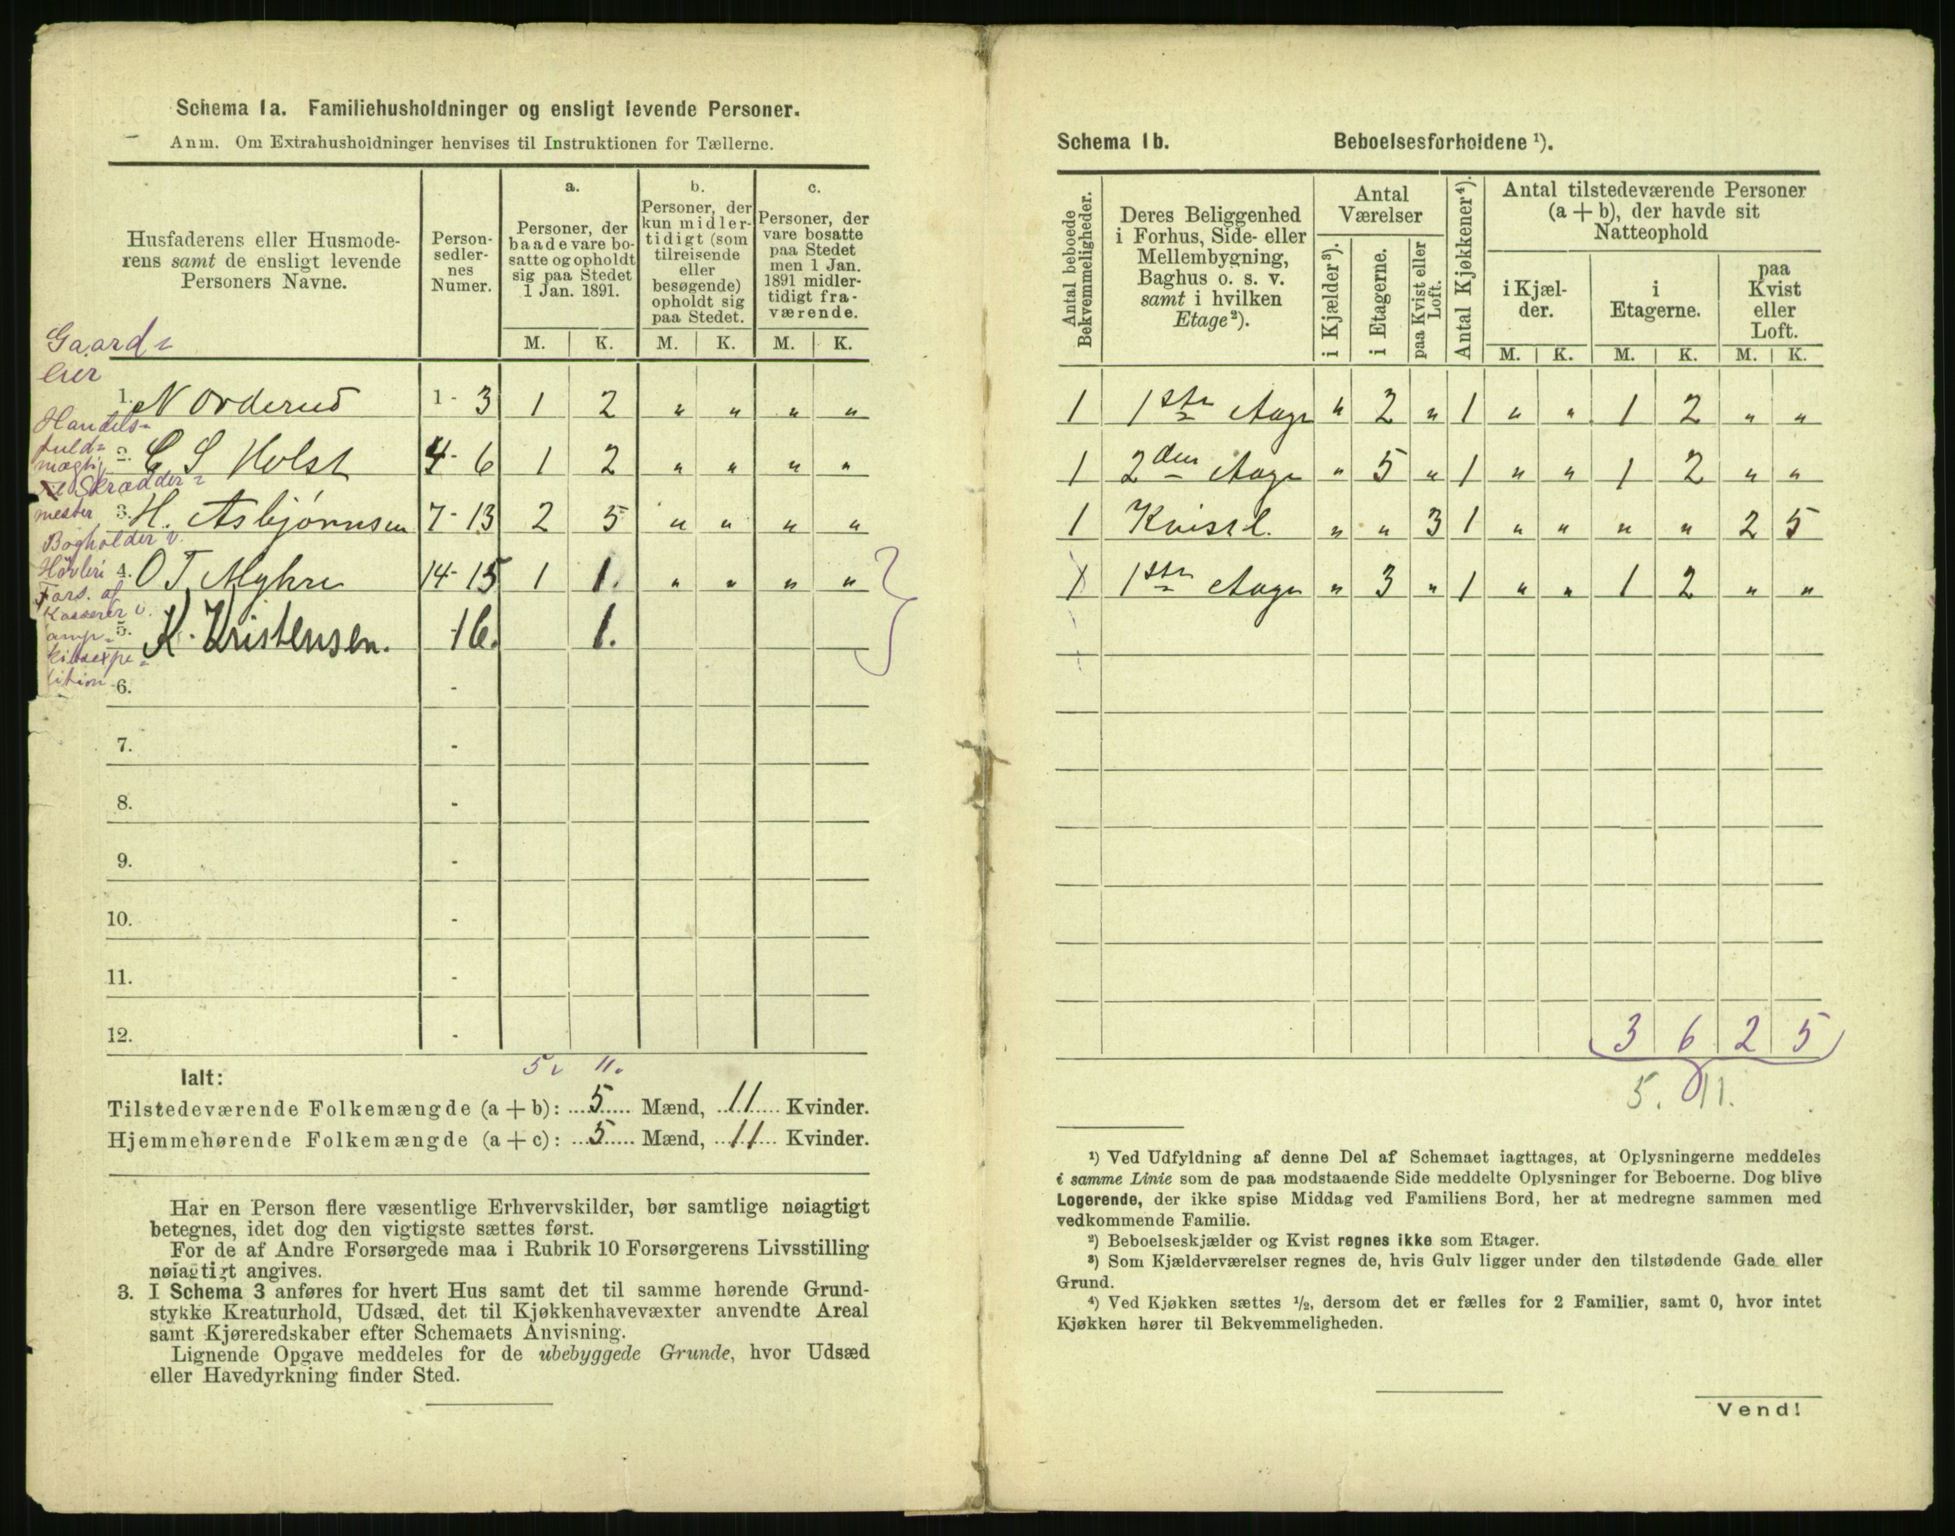 Schema 1a. Familiehusholdninger og ensligt levende Personer.
Anm. Om Extrahusholdninger henvises til Instruktionen for Tællerne.
Husfaderens eller Husmode-
rens samt de ensligt levende
Personers Navne.
Person-
sedler-
nes
Numer.
a.
Personer, der
baade vare bo-
satte og opholdt
sig paa Stedet
1 Jan. 1891.
b.
Personer, der
kun midler-
tidigt (som
tilreisende
eller
besøgende)
opholdt sig
paa Stedet.
c.
Personer, der
vare bosatte
paa Stedet
men 1 Jan.
1891 midler-
tidigt fra-
værende.
M. K. M. K. M. K.
Gaard-
eier
1. N Orderud 1 - 3 1 2 " " " "
Handels-
fuld-
mægtig
2. C. S Holst 4 - 6 1 2 " " " "
Skrædder-
mester
3. H. Asbjørnsen 7 - 13 2 5 " " " "
Bogholder v.
Høvleri
4. O T. Myhre 14 - 15 1 1. " " " "
Fors. af
Kasserer v.
5. K. Kristensen. 16. 1.
6. -
7. -
8. -
9. -
10. -
11. -
12. -
5. 11.
Ialt:
Tilstedeværende Folkemængde (a + b): 5 Mænd, 11 Kvinder.
Hjemmehørende Folkemængde (a + c): 5 Mænd, 11 Kvinder.
Har en Person flere væsentlige Erhvervskilder, bør samtlige nøiagtigt
betegnes, idet dog den vigtigste sættes først.
For de af Andre Forsørgede maa i Rubrik 10 Forsørgerens Livsstilling
nøiagtigt angives.
3. I Schema 3 anføres for hvert Hus samt det til samme hørende Grund-
stykke Kreaturhold, Udsæd, det til Kjøkkenhavevæxter anvendte Areal
samt Kjøreredskaber efter Schemaets Anvisning.
Lignende Opgave meddeles for de ubebyggede Grunde, hvor Udsæd
eller Havedyrkning finder Sted.
Schema 1b. Beboelsesforholdene ¹).
Antal beboede
Bekvemmeligheder.
Deres Beliggenhed
i Forhus, Side- eller
Mellembygning,
Baghus o. s. v.
samt i hvilken
Etage²).
Antal
Værelser
i Kjælder³).
i Etagerne.
paa Kvist eller
Loft.
Antal Kjøkkener⁴).
Antal tilstedeværende Personer
(a + b), der havde sit
Natteophold
i Kjæl-
der.
i
Etagerne.
paa
Kvist
eller
Loft.
M. K. M. K. M. K.
1 1ste Etage " 2 " 1 " " 1 2 " "
1 2den Etage " 5 " 1 " " 1 2 " "
1 Kvist. " " 3 1 " " " " 2 5
1 1ste Etage " 3 " 1 " " 1 2 " "
3 6 2 5
5. 11.
¹) Ved Udfyldning af denne Del af Schemaet iagttages, at Oplysningerne meddeles
i samme Linie som de paa modstaaende Side meddelte Oplysninger for Beboerne. Dog blive
Logerende, der ikke spise Middag ved Familiens Bord, her at medregne sammen med
vedkommende Familie.
²) Beboelseskjælder og Kvist regnes ikke som Etager.
³) Som Kjælderværelser regnes de, hvis Gulv ligger under den tilstødende Gade eller
Grund.
⁴) Ved Kjøkken sættes ½, dersom det er fælles for 2 Familier, samt 0, hvor intet
Kjøkken hører til Bekvemmeligheden.
Vend!